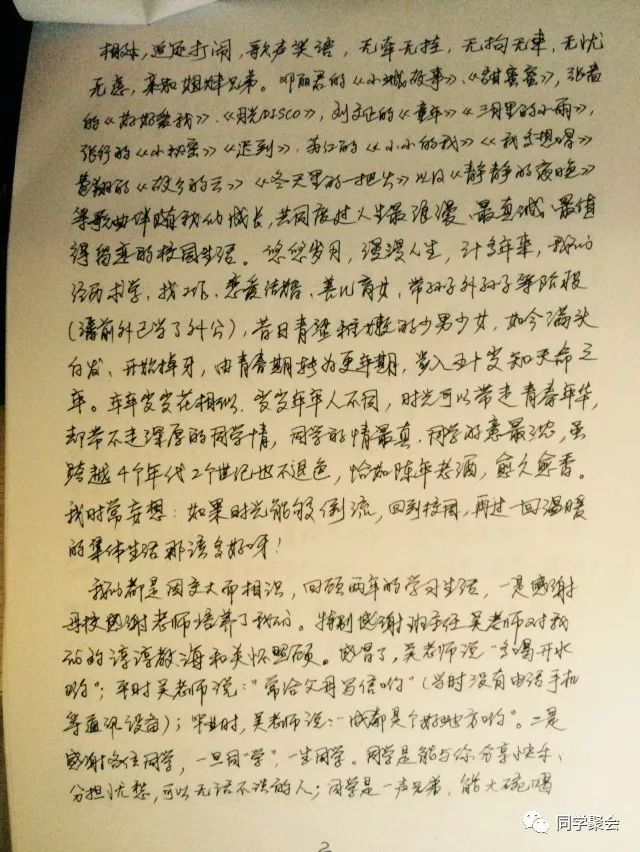 相处，追逐打闹，歌声笑语，无牵无挂，无拘无束，无忧
无虑，亲如姐妹兄弟。邓丽君的《小城故事》、《甜蜜蜜》，张蔷
的《好好爱我》、《月光DISCO》，刘文正的《童年》《三月里的小雨》，
张行的《小秘密》《迟到》，苏红的《小小的我》《我多想唱》
费翔的《故乡的云》《冬天里的一把火》以及《静静的夜晚》
等歌曲伴随我们成长，共同度过人生最浪漫、最真诚、最值
得留恋的校园生活。悠悠岁月，漫漫人生，卅多年来，我们
经历求学，找工作，恋爱结婚，养儿育女，带孙子外孙子等阶段
（潘前外已当了外公），昔日青涩稚嫩的少男少女，如今满头
白发、开始掉牙，由青春期转为更年期，步入五十岁知天命之
年。年年岁岁花相似，岁岁年年人不同，时光可以带走青春年华，
却带不走深厚的同学情，同学的情最真，同学的意最浓，虽
跨越4个年代2个世纪也不退色，恰如陈年老酒，愈久愈香。
我时常妄想：如果时光能够倒流，回到校园，再过一回温暖
的集体生活那该多好呀！
我们都是因交大而相识，回顾两年的学习生活，一是感谢
母校感谢老师培养了我们。特别感谢班主任吴老师对我
们的谆谆教诲和关怀照顾。感冒了，吴老师说"多喝开水
哟"；平时吴老师说："常给父母写信哟"（当时没有电话手机
等通讯设备）；毕业时，吴老师说："成都是个好地方哟"。二是
感谢各位同学，一旦同"学"，一生同学。同学是能与你分享快乐、
分担忧愁，可以无话不谈的人；同学是一声兄弟，能大碗喝
2
同学聚会